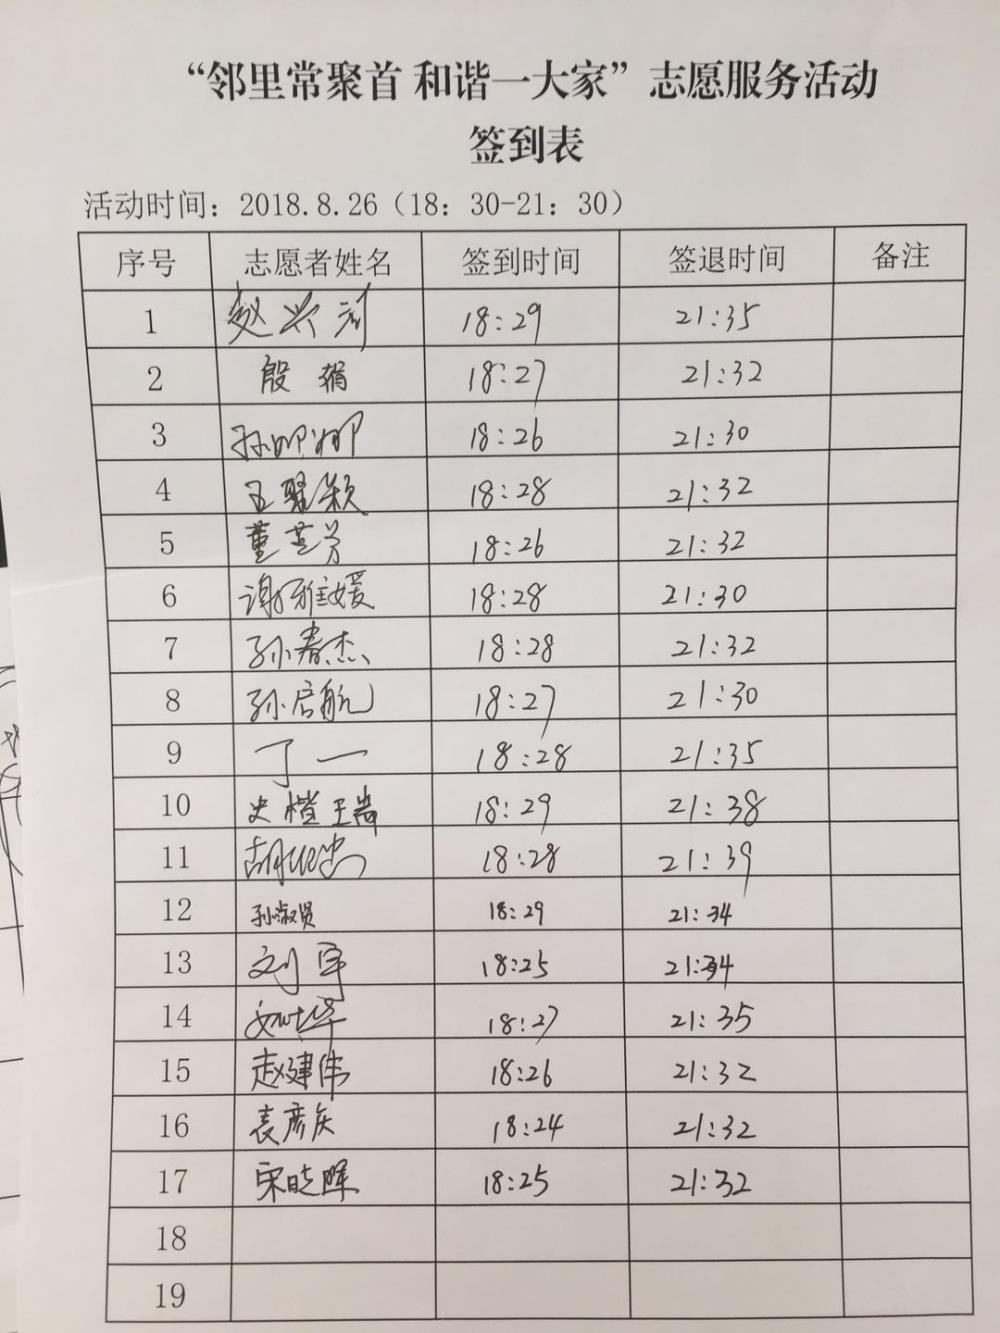 “邻里常聚首 和谐一大家”志愿服务活动
签到表
活动时间：2018.8.26（18：30-21：30）
序号 志愿者姓名 签到时间 签退时间 备注
1 赵兴河 18:29 21:35
2 殷娟 18:27 21:32
3 孙娜娜 18:26 21:30
4 王翠颖 18:28 21:32
5 董芸芳 18:26 21:32
6 谢雅媛 18:28 21:30
7 孙春杰 18:28 21:32
8 孙启航 18:27 21:30
9 丁一 18:28 21:35
10 史 18:29 21:38
11 胡 忠 18:28 21:39
12 孙淑贤 18:29 21:34
13 刘军 18:25 21:34
14 18:27 21:35
15 赵建伟 18:26 21:32
16 袁彦庆 18:24 21:32
17 宋晓晖 18:25 21:32
18
19